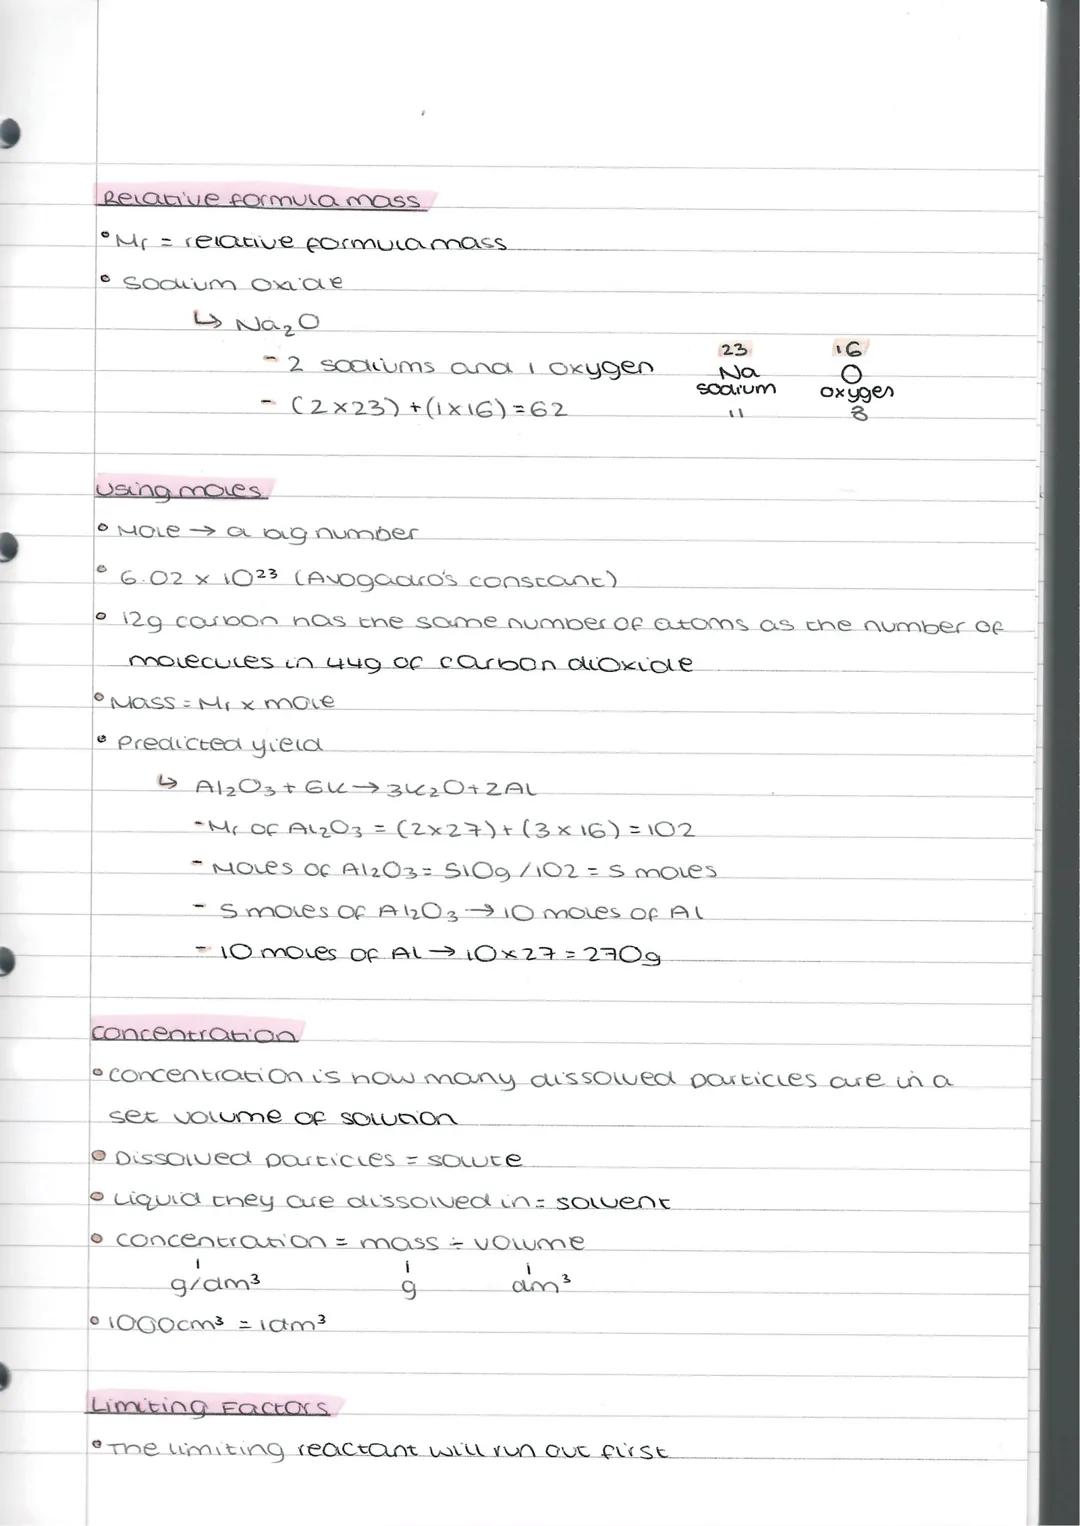 Relative formula mass
• Mr = relative formula mass
• Sodium oxide
↳ Na₂O
- 2 sodiums and 1 oxygen
- (2×23)+(1×16)=62
23 16
Na O
sodium oxygen
11 8
Using moles
• Mole → a big number
• 6.02 × 10²³ (Avogadro's constant)
• 12g carbon has the same number of atoms as the number of
molecules in 44g of carbon dioxide
• Mass = Mr × mole
• Predicted yield
↳ Al₂O₃ + 6K → 3K₂O + 2Al
- Mr of Al₂O₃ = (2×27)+(3×16)=102
- Moles of Al₂O₃ = 510g/102 = 5 moles
- 5 moles of Al₂O₃ → 10 moles of Al
- 10 moles of Al → 10×27 = 270g
Concentration
• Concentration is how many dissolved particles are in a
set volume of solution
• Dissolved particles = solute
• Liquid they are dissolved in = solvent
• Concentration = mass ÷ volume
g/dm³ g dm³
• 1000cm³ = 1dm³
Limiting Factors
• The limiting reactant will run out first